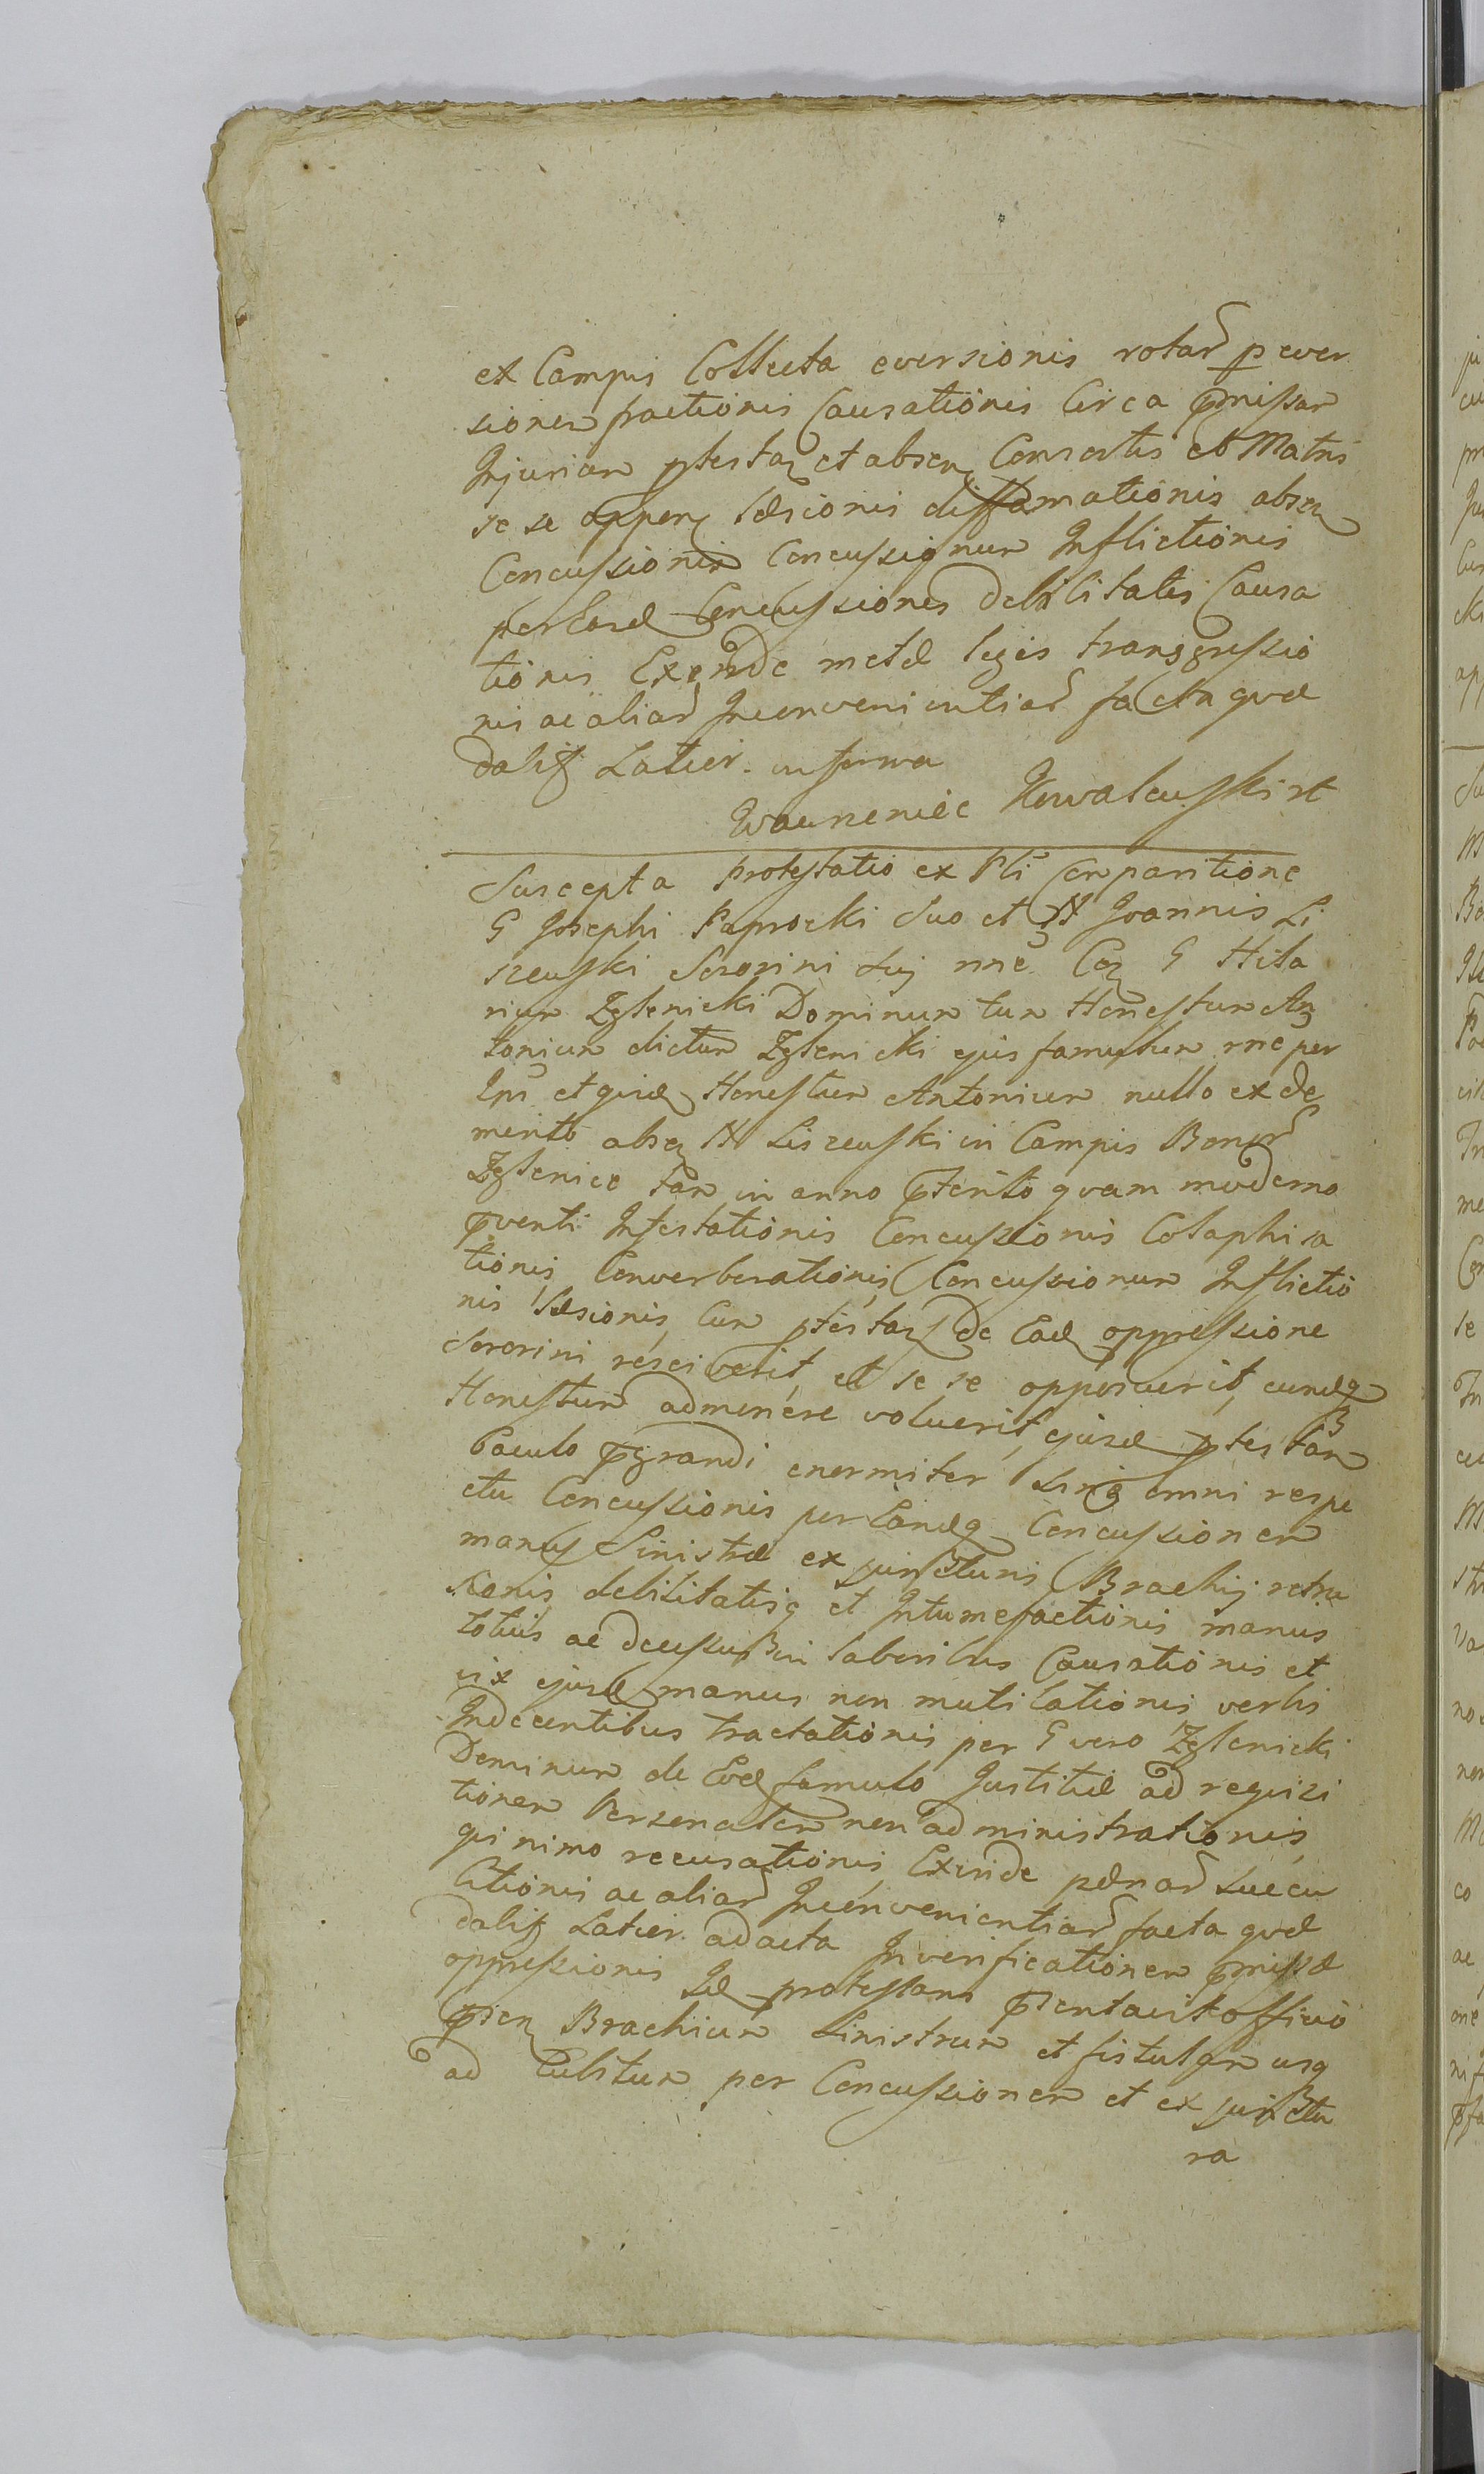 ex Campis Collecta eversionis rotar per ever
sionem fractionis Causationis Circa pmissam
Injuriam ptestan et absen Consortis et Matris
se se oppen læsionis diffamationis absen
Concussionis Concussionum Inflictionis
per Easd Concussiones debilitatis Causa
tionis Exinde metæ legis transgressio
nis ac aliar Inconvenientiar facta qvæ
dalis Latier. in forma
Kowalewski
Suscepta Protestatio ex Psli Comparitione
G Josephi Paprocki Suo et N Joannis Li
szewski Sororini sui nne Con G Hila
rium Zglenicki Dominum tum Honestum An
tonium dictum Zglenicki ejus famulum rne per
Ipm et quid Honestum Antonium nullo ex de
merito absen N Liszewski in Campis Bonor
Zglenice tam in anno pterito qvam moderno
pventi Infestationis Concussionis Colaphisa
tionis Converberationis Concussionum Inflictio
nis læsionis, Cum ptestan de Ead oppressione
Sororini resciverit, et se se opposuerit, eundq
Honestum admonere voluerit, ejusd ptestan
baculo pgrandi enormiter sine omni respe
ctu Concussionis per Eandq Concussionem
manus Sinistræ ex juncturis Brachij retru
sionis debilitatisq et Intumefactionis manus
totius ac decessus in laboribus Causationis et
vix ejusd manus non mutilationis verbis
Indecentibus tractationis per G vero Zglenicki
Dominum de Eod famulo Justitiæ ad requisi
tionem Personalem non administrationis,
qvinimo recusationis Exinde pænar succu
bitionis ac aliar Inconvenientiar facta qvæ
dalis Latier. ad acta In verificationem pmissæ
oppressionis Id protestans psentavit officio
psen Brachium Sinistrum et fistulam usq
ad Cubitum per Concussionem et ex junctu
ra